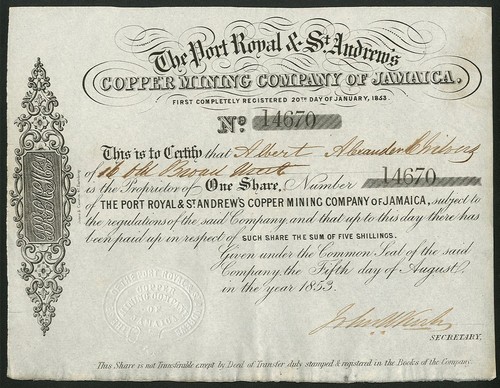 The Port Royal & St. Andrew's
COPPER MINING COMPANY OF JAMAICA.
FIRST COMPLETELY REGISTERED 20TH DAY OF JANUARY, 1853.
No. 14670
This is to Certify that Albert Alexander
of Old Broad Street
is the Proprietor of One Share, Number 14670
OF THE PORT ROYAL & ST. ANDREW'S COPPER MINING COMPANY OF JAMAICA, subject to
the regulations of the said Company, and that up to this day there has
been paid up in respect of SUCH SHARE THE SUM OF FIVE SHILLINGS.
Given under the Common Seal of the said
Company, the Fifth day of August,
in the year 1853.
THE PORT ROYAL &
COPPER
MINING COMPANY
OF
JAMAICA
John
SECRETARY.
This Share is not Transferable except by Deed of Transfer duly stamped & registered in the Books of the Company.